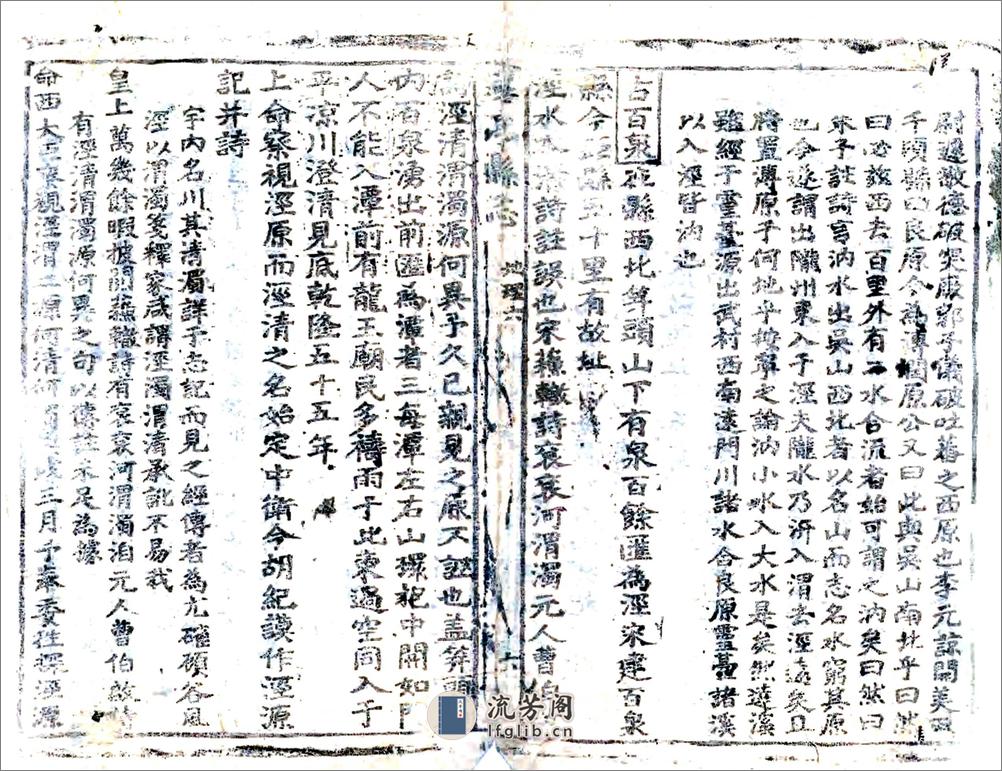 尉遲敬德破突厥郭子儀破吐蕃之西原也李元諒開美田
千頃縣曰良原今為潯澗原公又曰此與吳山南北乎曰然
曰必茲西去百里外有二水合流者始可謂之汭矣曰然曰
朱子註詩言汭水出吳山西北者以名山而志名水窮其原
也今遂謂出隴州東入于涇大隴水乃汧入渭去涇遠矣且
將置溥原于何地乎按寧之論汭小水入大水是矣然達溪
雖經于靈臺源出武村西南遠門川諸水合良原靈臺諸溪
以入涇皆汭也
古百泉在縣西北笄頭山下有泉百餘匯為涇宋建百泉
縣今縣五十里有故址
涇水朱詩註誤也宋蘇轍詩袞袞河渭濁元人曹伯
涇清渭濁源何異予久已親見之原不誣也蓋笄頭
內百泉湧出前匯為潭者三每潭左右山環抱中開如門
人不能入潭前有龍王廟民多禱雨于此東過空同入于
平凉川澄清見底乾隆五十五年
上命察視涇原而涇清之名始定中衛令胡紀謨作涇源
記并詩
宇內名川其清濁詳于志記而見之經傳者為尤確碩谷風
涇以渭濁箋釋家咸謂涇濁渭清承訛不易我
皇上萬幾餘暇披閱蘇轍詩有袞袞河渭濁洎元人曹伯啟詩
有涇清渭濁源何異之句以傳註未足為據
命西大吏察視涇渭二源何清何濁歲三月予奉委往探涇源
縣志
地理
六
流芳阁
lfglib.cn